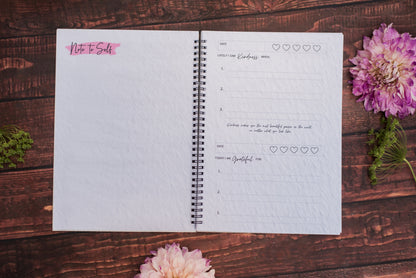 Note to Self
DATE
LATELY I SAW Kindness WHEN:
1.
2.
3.
Kindness makes you the most beautiful person in the world,
no matter what you look like.
DATE
TODAY I AM Grateful FOR:
1.
2.
3.